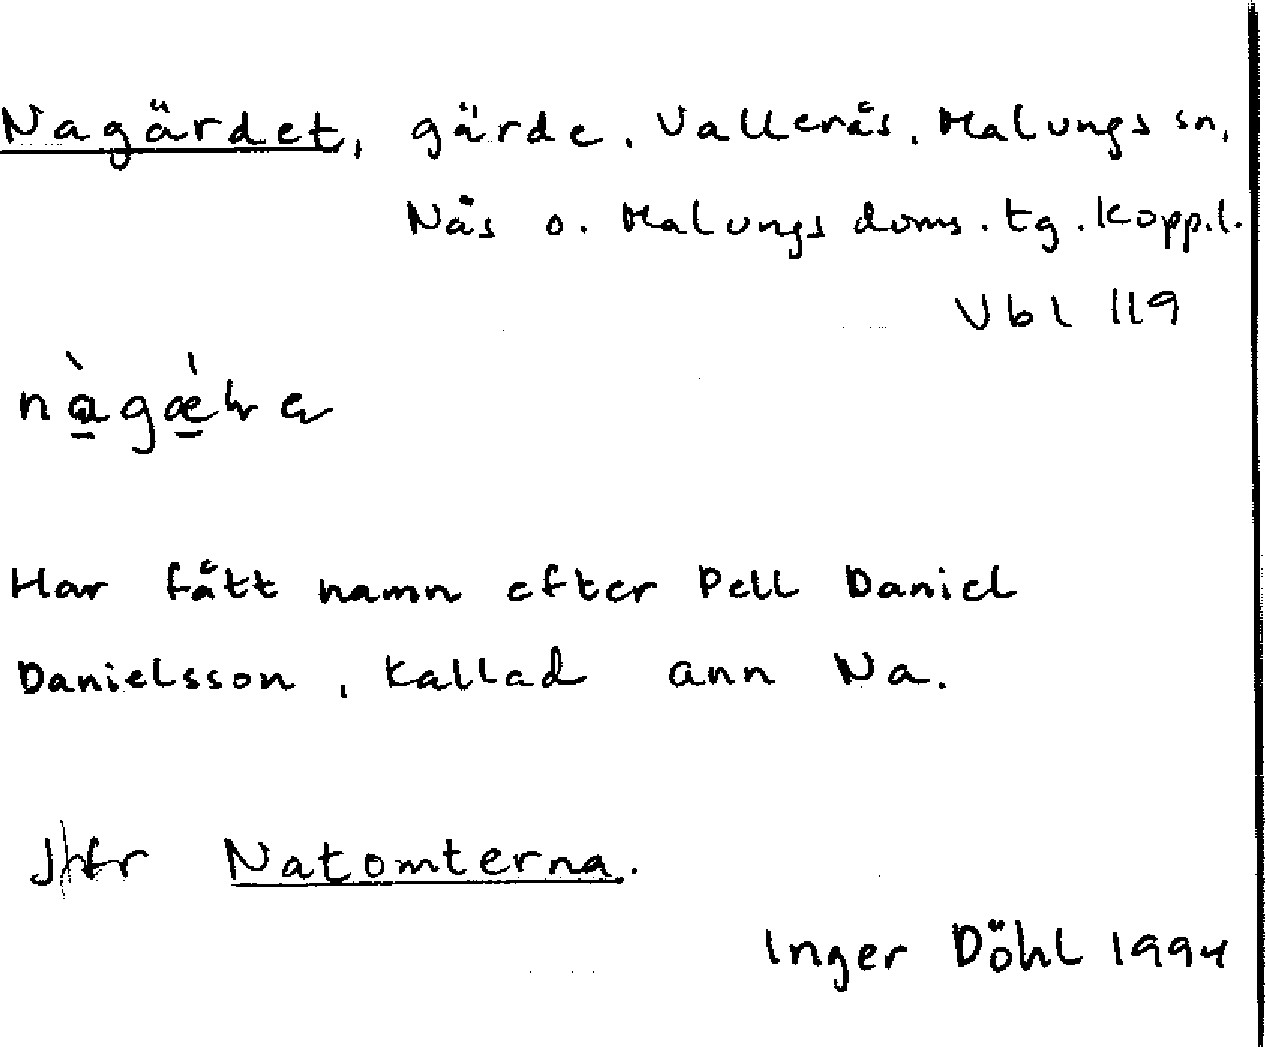 Nagärdet, gärde, Vallerås, Malungs sn,
Näs o. Malungs doms. tg. Kopp.l.
Vbl 119
Har fått namn efter Pell Daniel
Danielsson, kallad ann Na.
Jfr Natomterna.
Inger Döhl 1994